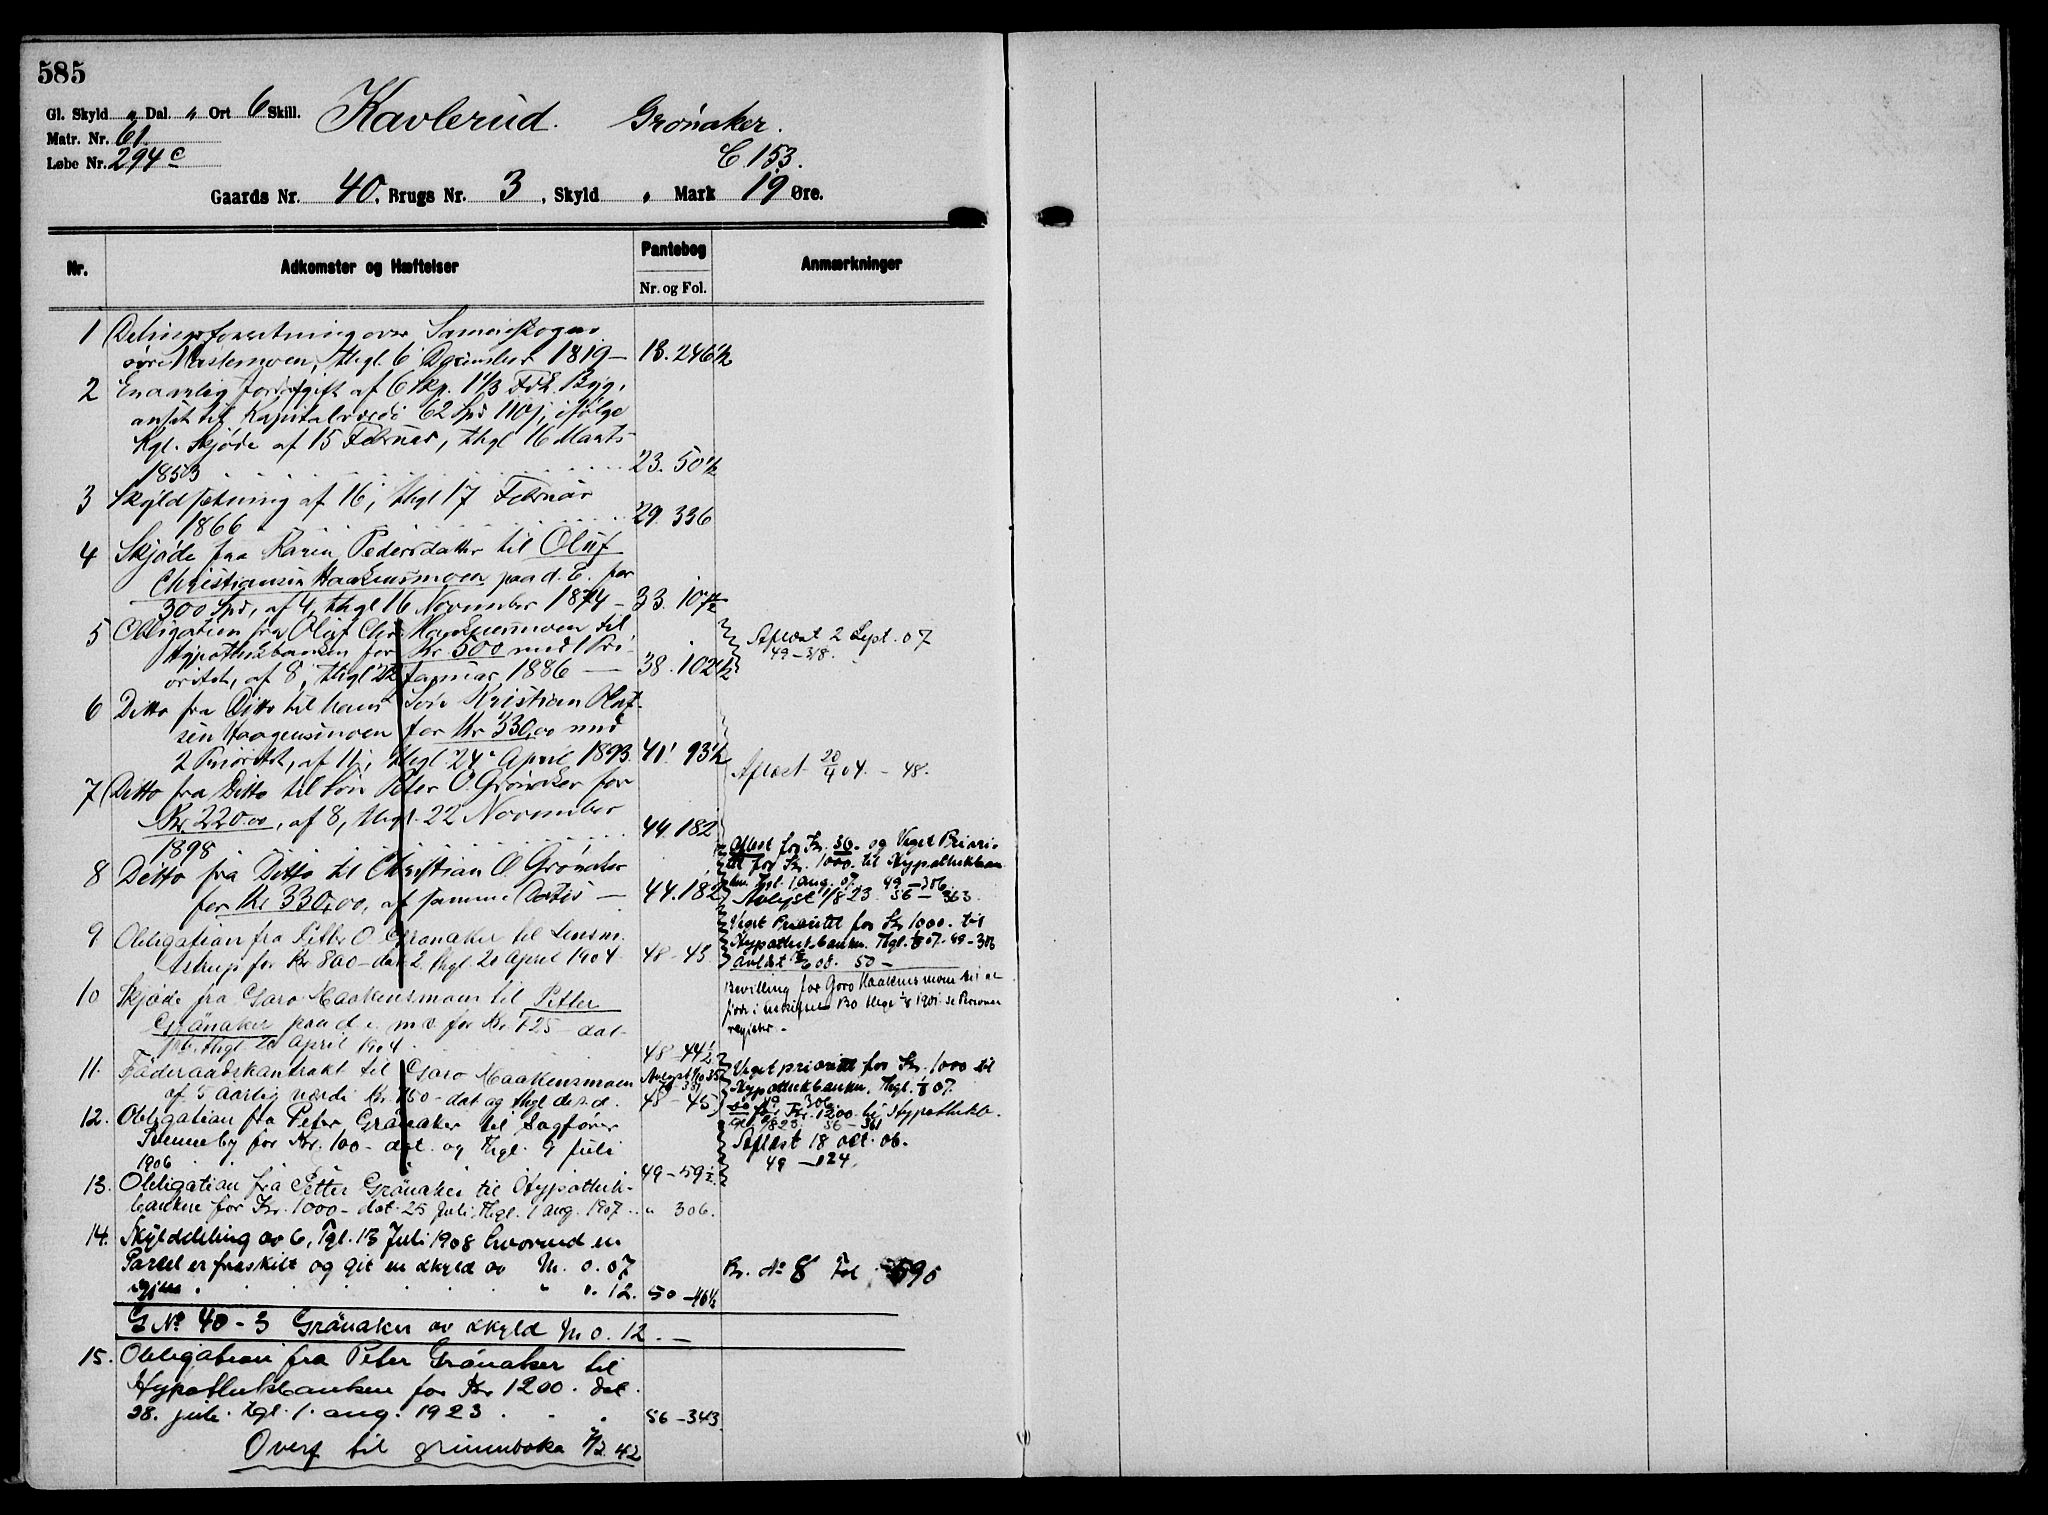 585
Gl. Skyld " Dal. " Ort 6 Skill.
Kavlerud. Grönaker.
Matr. Nr. 61.
Løbe Nr. 294 c
C. 153.
Gaards Nr. 40, Brugs Nr. 3, Skyld " Mark 19 Øre.
Nr.
Adkomster og Hæftelser
Pantebog
Nr. og Fol.
Anmærkninger
1 Delingsforretning over Sameieskogen
øvre Mastemoen, thgl. 6 December 1819 — 18. 246 1/2
2 En aarlig Jordafgift af 6 Skp. 1 1/3 Fdk. Byg,
ansat til Kapitalværdi 62 Spd 110 ẞ, ifølge
Kgl. Skjøde af 15 Februar, thgl 16 Marts
1853 23. 50 1/2
3 Skyldsætning af 16, thgl 17 Februar
1866 29. 336
4 Skjøde fra Karen Pedersdatter til Oluf
Christiansen Haakensmoen paa d. E. for
300 Spd, af 4, thgl 16 November 1874 — 33. 107 1/2
5 Obligation fra Oluf Chr. Haakensmoen til
Hypothekbanken for Kr 500 med 1 Pri-
oritet, af 8, thgl 22 Januar 1886 — 38. 102 1/2
Aflæst 2 Sept. 07
49 — 318.
6 Ditto fra Ditto til hans Søn Kristian Oluf-
sen Haagensmoen for Kr 330,00 med
2 Prioritet, af 11, thgl 24 April 1893. 41. 93 1/2
Aflæst 20/4 04. — 48.
7 Ditto fra Ditto til Søn Peter O. Grönaker for
Kr. 220.00, af 8, thgl. 22 November
1898 44. 182
8 Ditto fra Ditto til Christian O. Grønaker
for Kr 330,00, af samme Datis — 44. 182
Aflæst for Kr. 30. og Veget Priori-
tet for Kr. 1000. til Hypothekban
ken. Thgl. 1 aug. 07. 49 — 306.
Avlyst 1/8 23. 56 — 363
9 Obligation fra Petter O. Grönaker til Lensm.
Astrup for Kr 800 — dat 2. thgl. 20 April 1904. 48 — 45
Veget Prioritet for Kr 1000. til
Hypothekbanken. Thgl. 1/8 07. 49 — 306
50 —
10 Skjøde fra Goro Haakensmoen til Petter
Grönaker paa d. e. m v. for Kr. 725 — dat
thgl. 20 April 1904. 48 — 44 1/2
Bevilling for Goro Haakensmoen til at
i uskiftet Bo thgl 1901. se Personal
register. —
11. Föderaadskontrakt til Goro Haakensmoen
af 5 aarlig værdi Kr. 150 — dat og thgl de s. d. 48 — 45
Veget prioritet for Kr. 1000 til
Hypothekbanken. Thgl. 1/8 07.
49 306
do for Kr. 1200. til Hypothekb.
12. Obligation fra Peter Grönaker til Sagförer
Svenneby for Kr. 100 — dat. og thgl. 9 juli
1906 49 — 59 1/2
Aflæst 18 oct. 06.
49 — 124.
13. Obligation fra Petter Grönaker til Hypothek-
banken for Kr. 1000 — dat. 25 Juli, thgl. 1 aug. 1907 " 306.
14. Skylddeling av 6, Tgl. 13 Juli 1908 hvorved en
Parcel er fraskilt og git en skyld av M. 0.07
igjen " 0.12. 50 — 46 1/2
Br. No 8 Fol 590
G No 40 — 3 Grönaker av skyld M 0.12. —
15. Obligation fra Peter Grönaker til
Hypothekbanken for Kr 1200. dat.
28. juli. tgl. 1. aug. 1923. 56 — 343
Overf til grunnboka 42